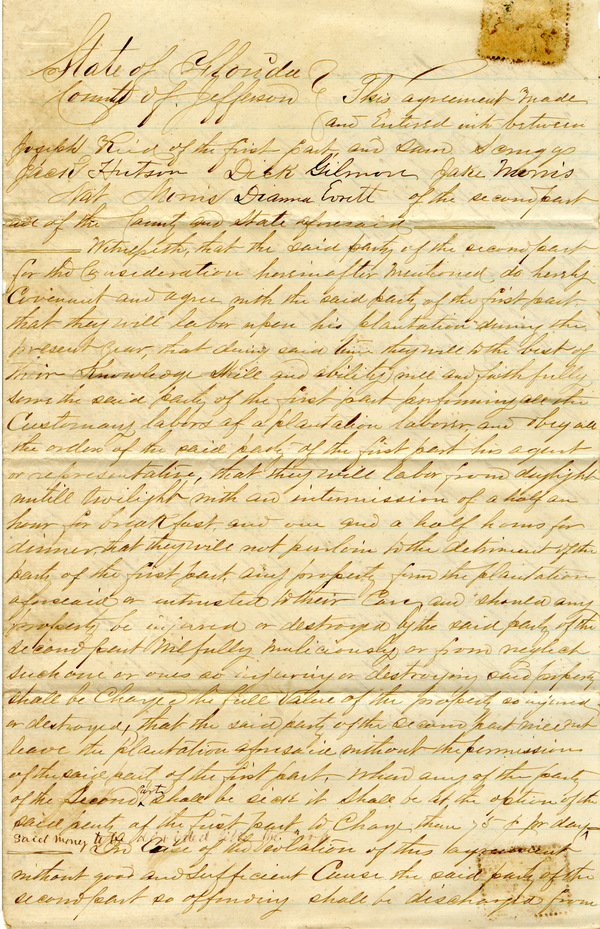 State of Florida
County of Jefferson
This agreement made
and Entered into between
Joseph of the first part and Sam Scruggs
Jack Hutson Dick Gilmon Jake Morris
Nat Morris Dianna Evrett of the second part
all of the County and State aforesaid
Witnesseth, that the said party of the second part
for the Consideration hereinafter mentioned do hereby
Covenant and agree with the said party of the first part
that they will labor upon his plantation during the
present year, that during said time they will to the best of
their Knowledge Skill and ability well and faithfully
serve the said party of the first part performing all the
Customary labors of a plantation laborer, and obey all
the orders of the said party of the first part his agent
or representative, that they will labor from daylight
untill twilight with an intermission of a half an
hour for breakfast and one and a half hours for
dinner, that they will not purloin to the detriment of the
party of the first part any property from the plantation
aforesaid or intrusted to their Care, and should any
property be injured or destroyed by the said party of the
second part wilfully maliciously or from neglect
such one or ones so injuring or destroying said property
shall be Charged the full value of the property so injured
or destroyed, that the said party of the second part will not
leave the plantation aforesaid without the permission
of the said party of the first part, When any of the party
of the Second part shall be sick it shall be at the option of the
said party of the first part to Charge them 75 ¢ pr day
Said money to be
In Case of the violation of this agreement
without good and sufficient Cause the said party of the
second part so offending shall be discharged from